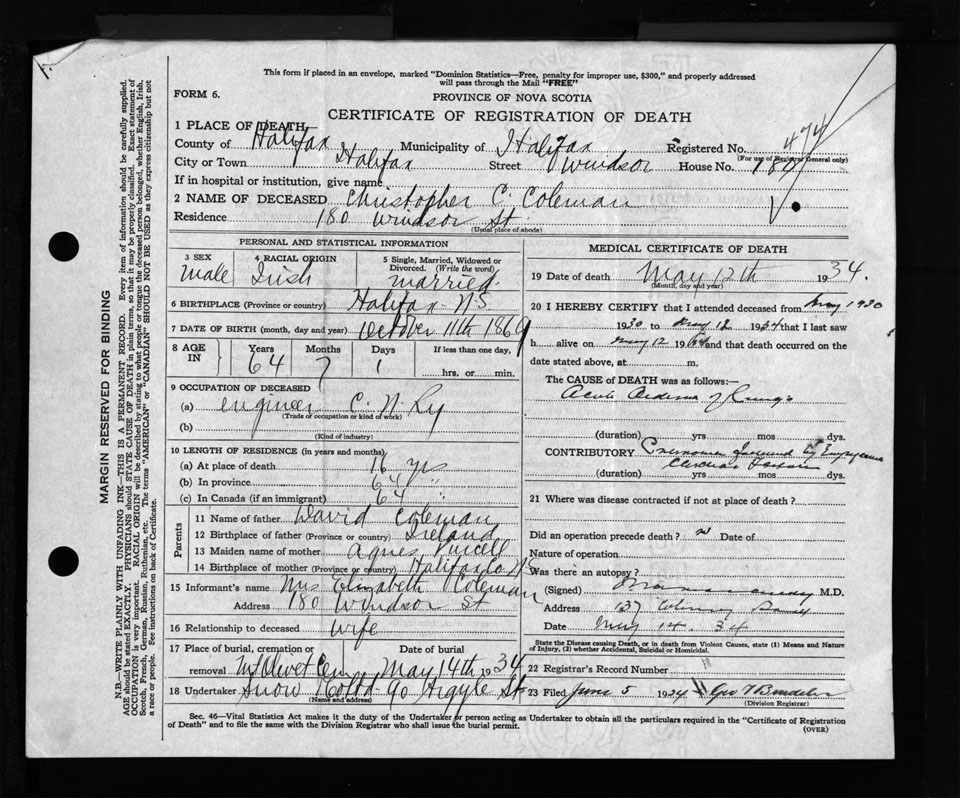 This form if placed in an envelope, marked "Dominion Statistics—Free, penalty for improper use, $300," and properly addressed
will pass through the Mail "FREE"
FORM 6.
PROVINCE OF NOVA SCOTIA
CERTIFICATE OF REGISTRATION OF DEATH
474
1 PLACE OF DEATH
County of Halifax Municipality of Halifax Registered No.
(For use of Registrar General only)
City or Town Halifax Street Windsor House No. 180
If in hospital or institution, give name
2 NAME OF DECEASED Christopher C. Coleman
Residence 180 Windsor St
(Usual place of abode)
PERSONAL AND STATISTICAL INFORMATION
3 SEX Male
4 RACIAL ORIGIN Irish
5 Single, Married, Widowed or Divorced. (Write the word) married.
6 BIRTHPLACE (Province or country) Halifax N.S
7 DATE OF BIRTH (month, day and year) October 11th 1869
8 AGE IN Years 64 Months 7 Days 1 If less than one day, hrs. or min.
9 OCCUPATION OF DECEASED
(a) engineer C. N. Ry
(Trade or occupation or kind of work)
(b)
(Kind of industry)
10 LENGTH OF RESIDENCE (in years and months)
(a) At place of death 16 yrs
(b) In province 64 "
(c) In Canada (if an immigrant) 64 "
Parents
11 Name of father David Coleman
12 Birthplace of father (Province or country) Ireland
13 Maiden name of mother Agnes Purcell
14 Birthplace of mother (Province or country) Halifax Co NS
15 Informant's name Mrs Elizabeth Coleman
Address 180 Windsor St
16 Relationship to deceased wife
17 Place of burial, cremation or removal Mt Olivet Cem Date of burial May 14th 1934
18 Undertaker Snow & Co Ltd 90 Argyle St
(Name and address)
MEDICAL CERTIFICATE OF DEATH
19 Date of death May 12th 1934.
(Month, day and year)
20 I HEREBY CERTIFY that I attended deceased from May 1930
1930 to May 12 1934 that I last saw
h alive on May 12 1934 and that death occurred on the
date stated above, at m.
The CAUSE of DEATH was as follows:—
Acute Oedema of Lungs
(duration) yrs mos dys.
CONTRIBUTORY Pneumonia followed by Empyema
(duration) yrs mos dys.
21 Where was disease contracted if not at place of death?
Did an operation precede death? Date of
Nature of operation
Was there an autopsy?
(Signed) M.D.
Address 137
Date May 14. 34
State the Disease causing Death, or in death from Violent Causes, state (1) Means and Nature
of Injury, (2) whether Accidental, Suicidal or Homicidal.
22 Registrar's Record Number
23 Filed June 5 1934 Geo
(Division Registrar)
Sec. 46—Vital Statistics Act makes it the duty of the Undertaker or person acting as Undertaker to obtain all the particulars required in the "Certificate of Registration
of Death" and to file the same with the Division Registrar who shall issue the burial permit.
(OVER)
MARGIN RESERVED FOR BINDING
N.B.—WRITE PLAINLY WITH UNFADING INK—THIS IS A PERMANENT RECORD. Every item of information should be carefully supplied.
AGE should be stated EXACTLY. PHYSICIANS should STATE CAUSE OF DEATH in plain terms, so that it may be properly classified. Exact statement of
OCCUPATION is very important. RACIAL ORIGIN will be described by stating to what people or tongue the deceased person belonged, whether English, Irish,
Scotch, French, German, Russian, Ruthenian, etc. The terms "AMERICAN" or "CANADIAN" SHOULD NOT BE USED as they express citizenship but not
a race or people. See instructions on back of Certificate.